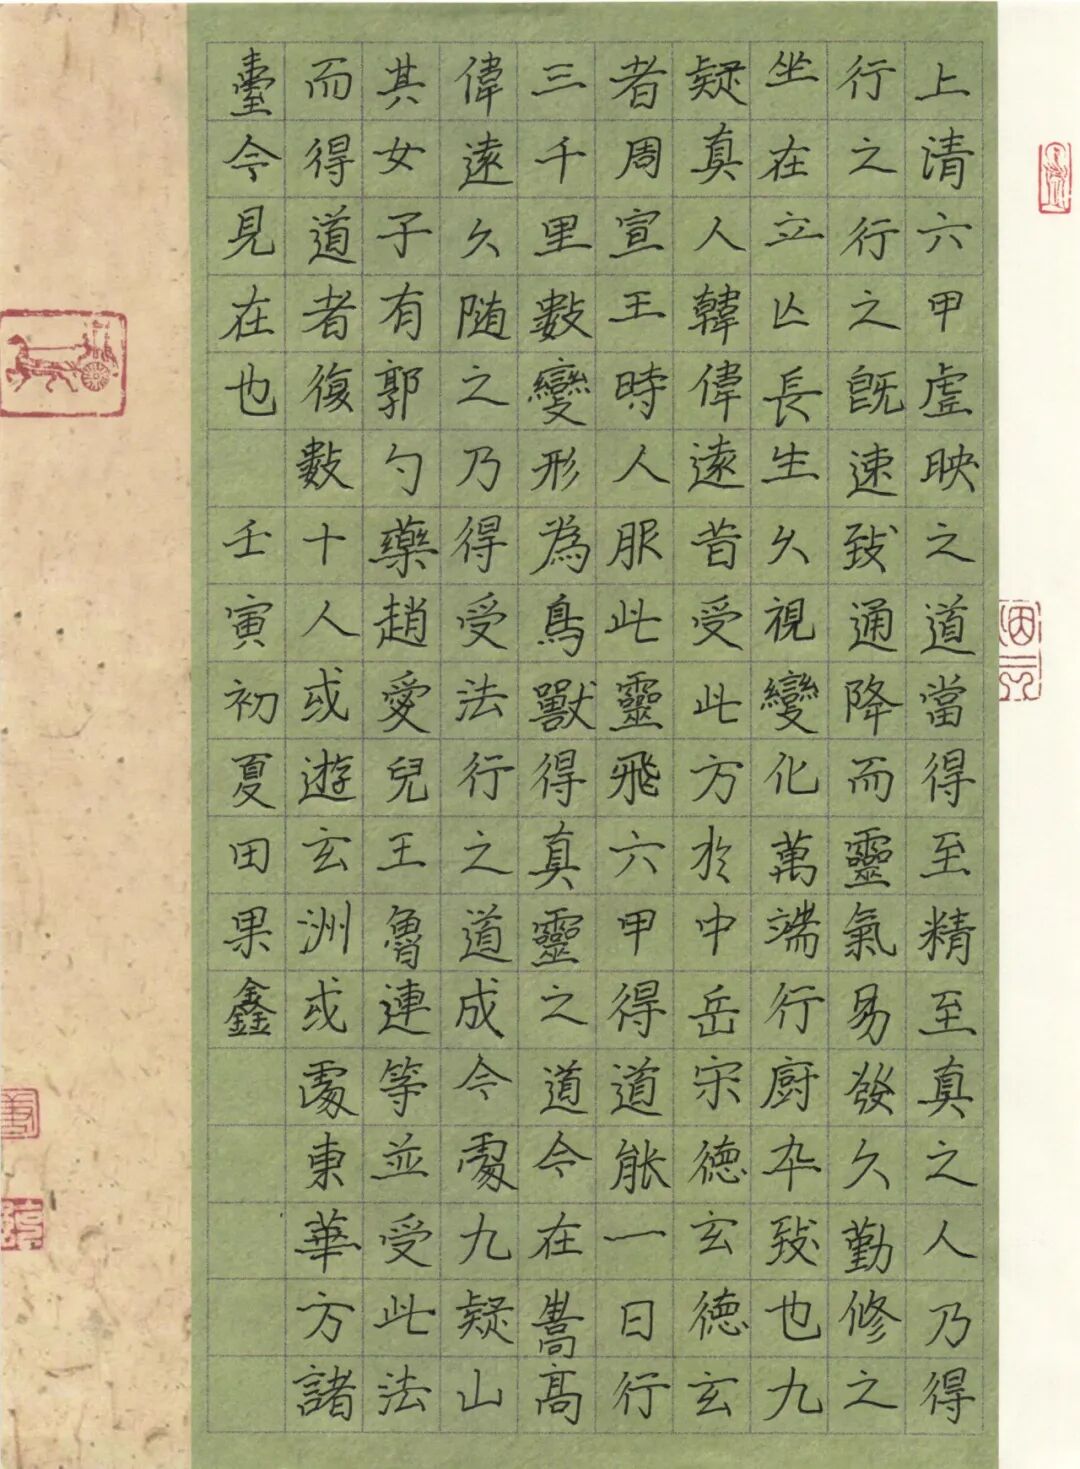 上清六甲虛映之道當得至精至真之人乃得
行之行之既速致通降而靈氣易發久勤修之
坐在立亾長生久視變化萬端行厨卒致也九
疑真人韓偉遠昔受此方於中岳宋德玄德玄
者周宣王時人服此靈飛六甲得道能一日行
三千里數變形為鳥獸得真靈之道今在嵩高
偉遠久隨之乃得受法行之道成今處九疑山
其女子有郭勺藥趙愛兒王魯連等並受此法
而得道者復數十人或遊玄洲或處東華方諸
臺今見在也 壬寅初夏田果鑫